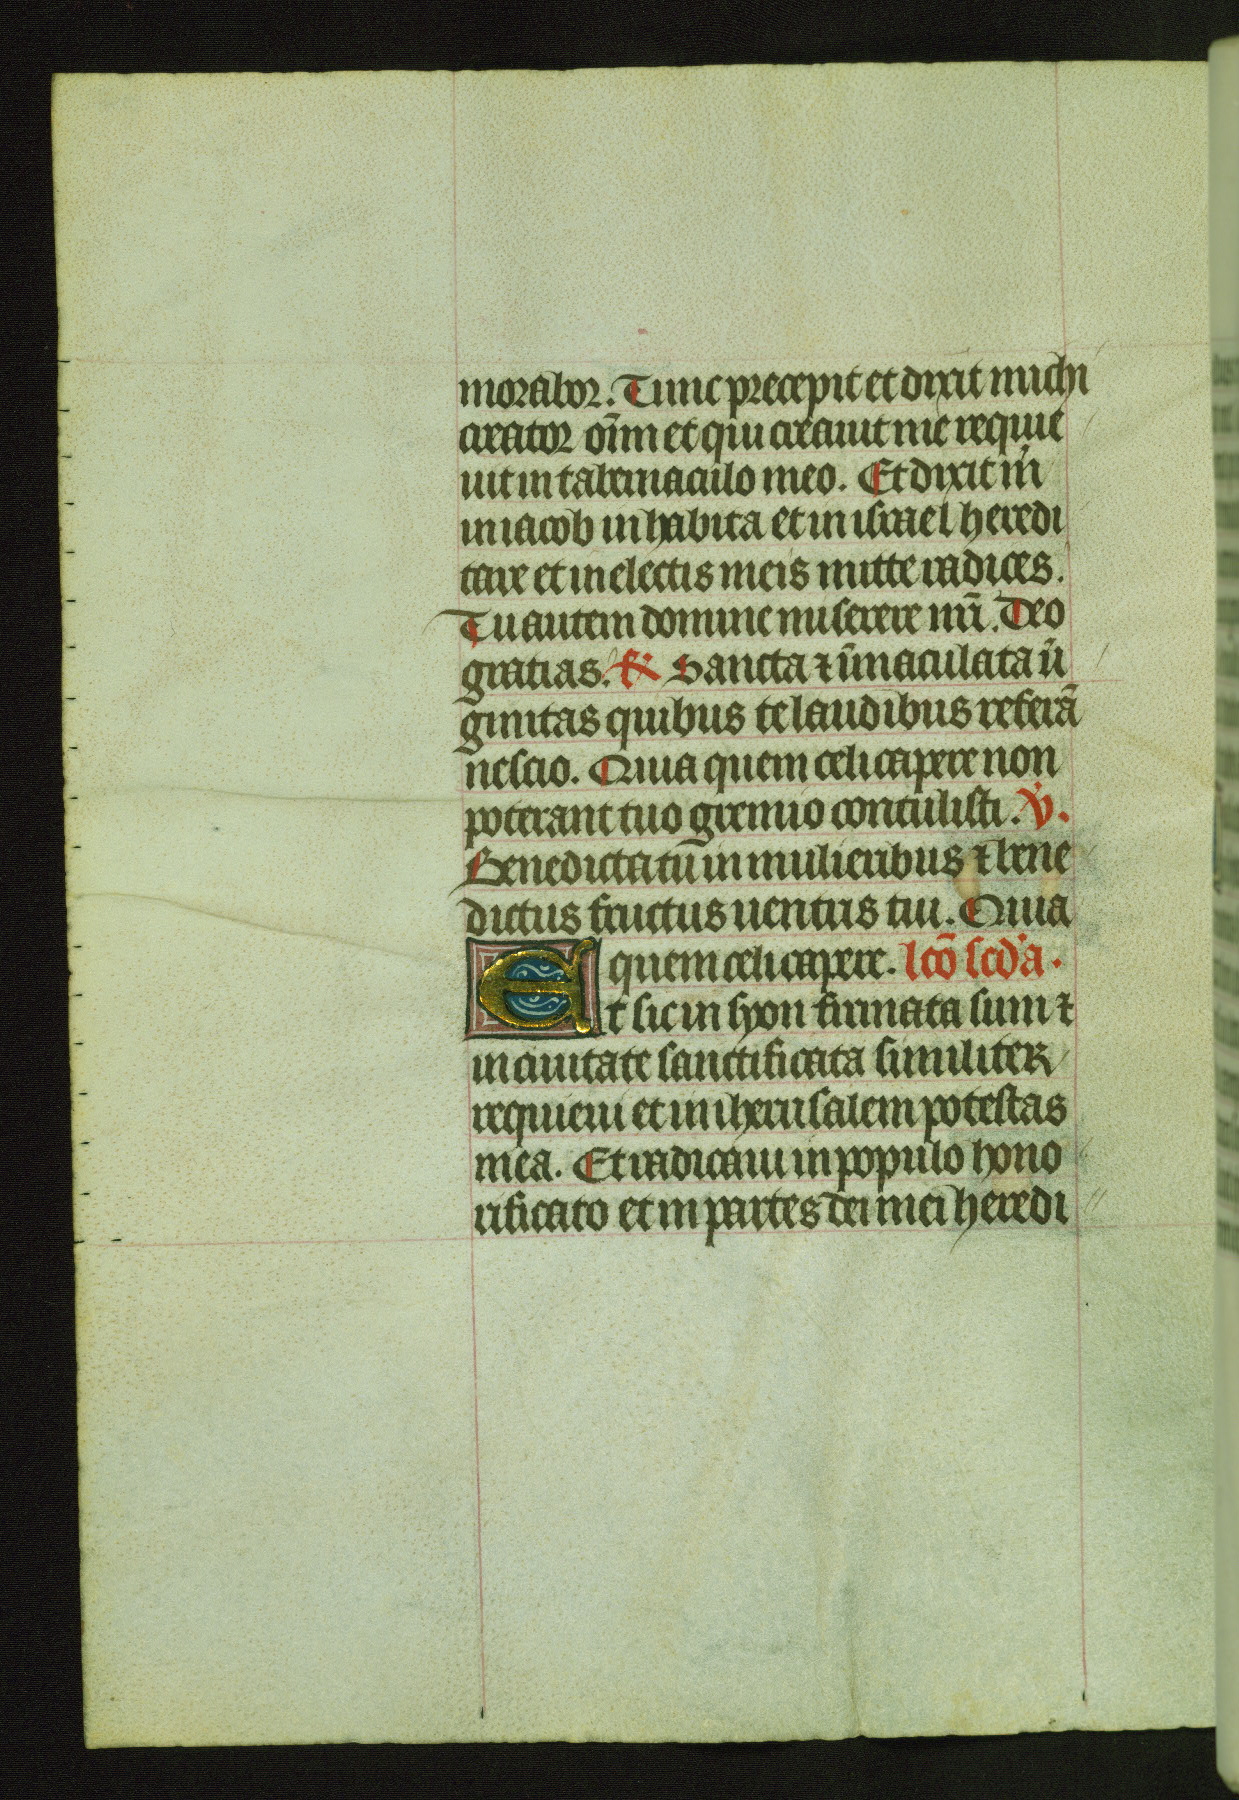 morabor. Tunc precepit et dixit michi
creator oĩm et qui creauit me requie
uit in tabernaculo meo. Et dixit m̃
in iacob inhabita et in israel heredi
tare et in electis meis mitte radices.
Tu autem domine miserere nr̃i. Deo
gratias. R̃. Sancta ⁊ ĩmaculata uir̃
ginitas quibus te laudibus referã
nescio. Quia quem celi capere non
poterant tuo gremio contulisti. V̇.
Benedicta tu in mulieribus ⁊ bene
dictus fructus uentris tui. Quia
quem celi capere. lcõ scďa.
Et sic in syon firmata sum ⁊
in ciuitate sanctificata similiter
requieui et in iherusalem potestas
mea. Et radicaui in populo hono
rificato et in partes dei mei heredi